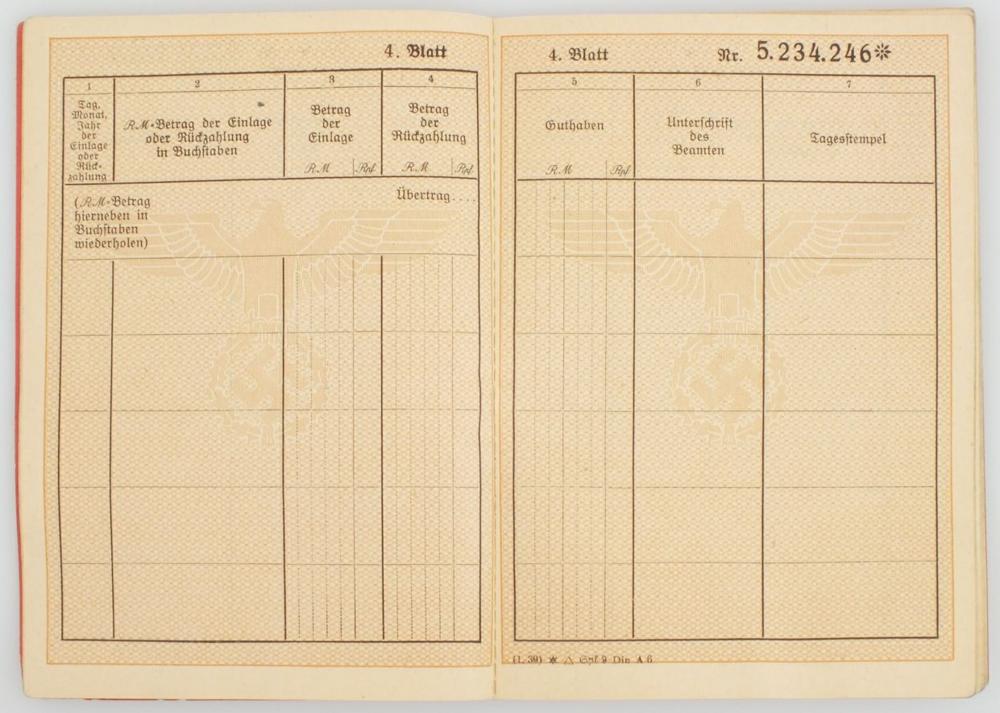 4. Blatt
1
2
3
4
Tag,
Monat,
Jahr
der
Einlage
oder
Rück-
zahlung
RM-Betrag der Einlage
oder Rückzahlung
in Buchstaben
Betrag
der
Einlage
RM Rpf
Betrag
der
Rückzahlung
RM Rpf
(RM-Betrag
hierneben in
Buchstaben
wiederholen)
Übertrag....
4. Blatt Nr. 5.234.246*
5
6
7
Guthaben
RM Rpf
Unterschrift
des
Beamten
Tagesstempel
(1. 39) * △ Spf 9 Din A 6